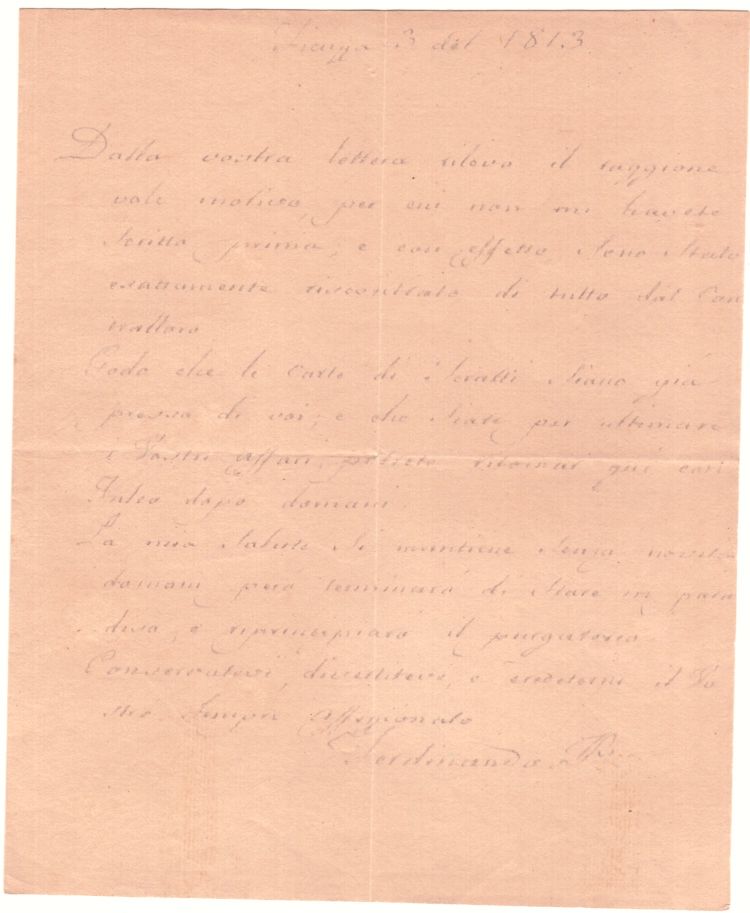 3 del 1813
Dalla vostra lettera rilevo il raggione
vole motivo, per cui non mi havete
scritto prima; e con effetto sono stato
esattamente riscontrato di tutto dal Con
trattore
Godo che le carte di Seratti siano già
presso di voi; e che siate per ultimare
i Vostri affari, potreto ritornar qui con
dopo domani.
La mia salute si mantiene senza novità
domani però terminarà di stare in para
diso, e riprincipiarà il purgatorio
Conservatevi, divertiteve, e credetemi il Vo
stro sempre affezionato
Ferdinando